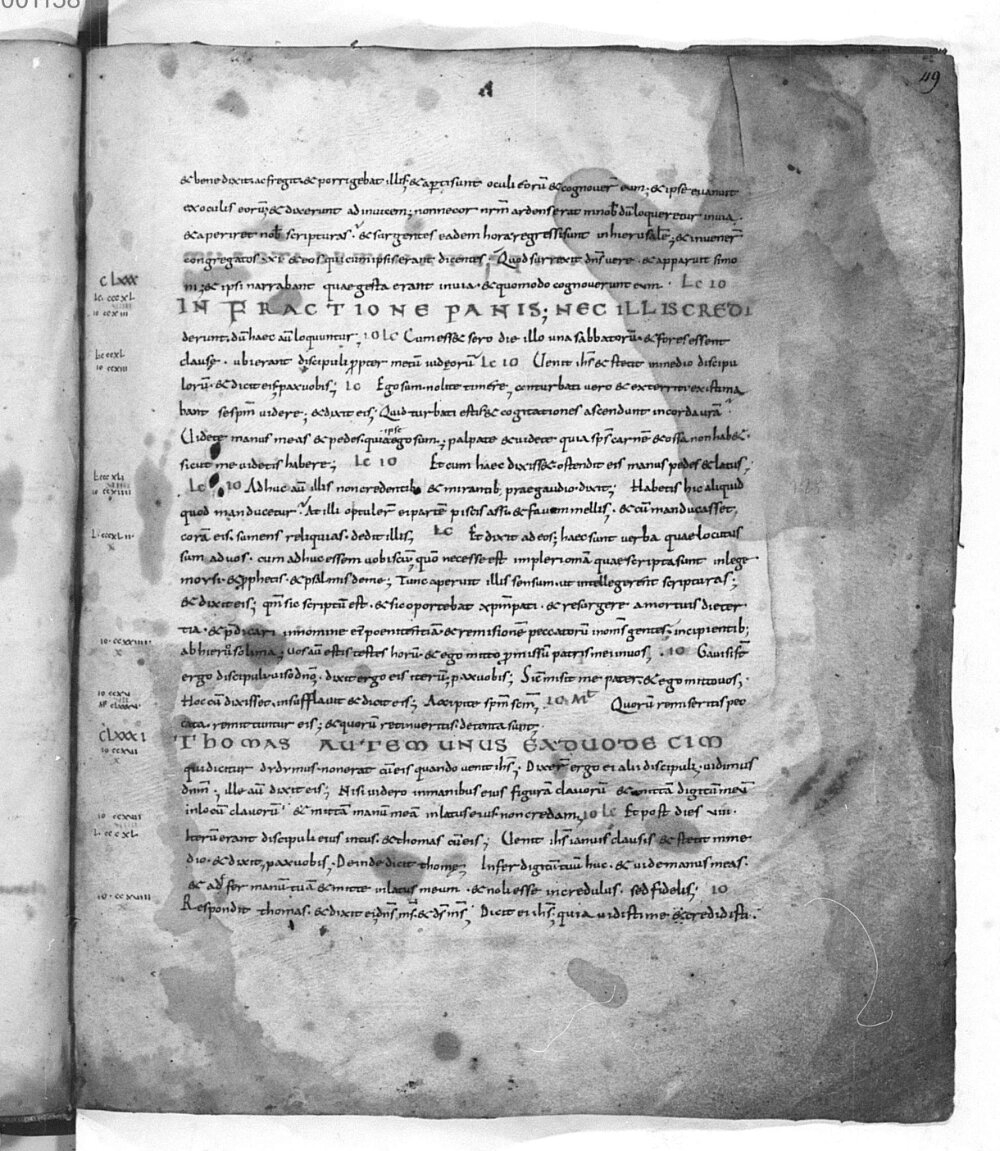 49
& benedixit ac fregit & porrigebat illis & aperti sunt oculi eorū & cognoverē eum; & ipse evanuit
ex oculis eorū; & dixerunt ad invicem; nonne cor nr̄m ardens erat in nob dū loqueretur in via
& aperiret nob scripturas. & surgentes eadem hora regressi sunt in hierusalē; & invener̄
congregatos xi & eos qui cum ipsis erant dicentes; Quod surrexit dn̄s vere & apparuit simo
ni; & ipsi narrabant quae gesta erant in via & quomodo cognoverunt eum. Lc 10
CLXXX
IN FRACTIONE PANIS; NEC ILLIS CREDI
derunt; dū haec aū loquuntur; 10 Lc Cum ess& sero die illo una sabbatorū & fores essent
clause. ubi erant discipuli ꝓpter metū iudeorū Lc 10 Venit ih̄s & stetit in medio discipu
lorū & dicit eis; pax vobis; Lc Ego sum nolite timere; conturbati vero & exterriti existima
bant se spm̄ videre; & dixit eis; Quid turbati estis & cogitationes ascendunt in corda ur̄a
Videte manus meas & pedes quia ipse ego sum; palpate & videte quia sp̄s carnē & ossa non hab&
sicut me videtis habere; Lc 10 Et cum haec dixiss& ostendit eis manus pedes & latus;
Lc 10 Adhuc aū illis non credentib; & mirantib; prae gaudio dixit; Habetis hic aliquid
quod manducetur. At illi optuler̄ ei partē piscis assi & favum mellis; & cū manducasset
corā eis; sumens reliquias dedit illis; Lc Et dixit ad eos; haec sunt verba quae locutus
sum ad vos cum adhuc essem vobiscū; quō necesse est impleri omā quae scripta sunt in lege
moysi & ꝓphetis & psalmis de me; Tunc aperuit illis sensum ut intellegerent scripturas;
& dixit eis; qm̄ sic scriptū est & sic oportebat xp̄m pati & resurgere a mortuis die ter
tia & p̄dicari in nomine ei poenitentiā & remissionē peccatorū in om̄s gentes; incipientib;
ab hierusolima; vos aū estis testes horū & ego mitto ꝓmissū patris mei in vos; 10 Gavisi sr̄
ergo discipuli viso dn̄o; dixit ergo eis iterū; pax vobis; Sic̄ misit me pater & ego mitto vos;
Hoc cū dixisset insufflavit & dixit eis; Accipite spm̄ scm̄; 10 Mt Quorū remiseritis pec
cata remittuntur eis; & quorū retinueritis detenta sunt;
CLXXXI
THOMAS AUTEM UNUS EX DUODECIM
qui dicitur didimus non erat cū eis quando venit ih̄s; Dixer̄ ergo ei alii discipuli; vidimus
dn̄m; ille aū dixit eis; Nisi videro in manibus eius figurā clavorū & mittā digitū meū
in locū clavorū & mittā manū meā in latus eius non credam; 10 Lc Et post dies viii
iterū erant discipuli eius intus & thomas cū eis; Venit ih̄s ianuis clausis & stetit in me
dio & dixit; pax vobis; Deinde dicit thome; Infer digitū tuū huc & vide manus meas
& adfer manū tuā & mitte in latus meum & noli esse incredulus sed fidelis; 10
Respondit thomas & dixit ei; dn̄s m̄s & d̄s m̄s; Dicit ei ih̄s; quia vidisti me & credidisti.